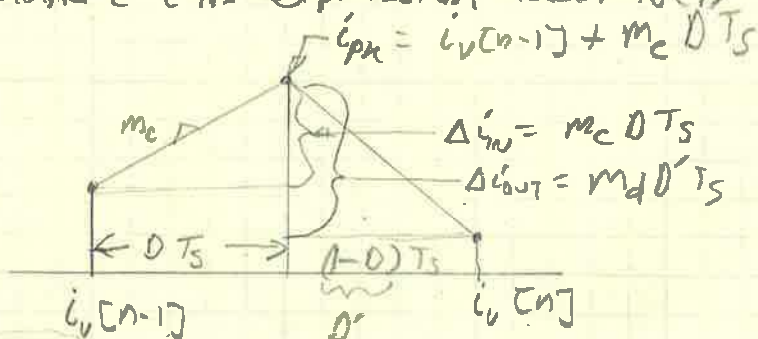 i_pk = i_v[n-1] + m_c D T_S
m_c
Δi_IN = m_c D T_S
Δi_OUT = m_d D' T_S
D T_S
(1-D) T_S
i_v[n-1]
D'
i_v[n]